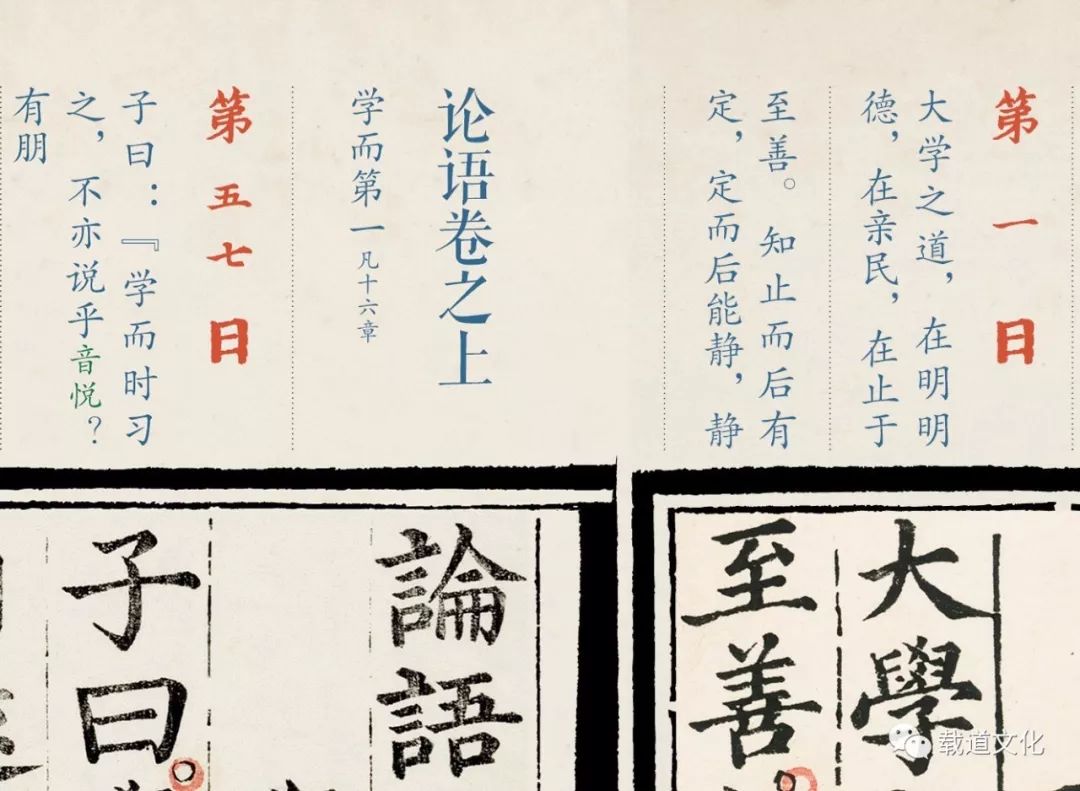 第一日
大学之道，在明明
德，在亲民，在止于
至善。知止而后有
定，定而后能静，静
论语卷之上
学而第一凡十六章
第五七日
子曰：『学而时习
之，不亦说乎音悦？
有朋
大學
至善
論語
子曰
载道文化